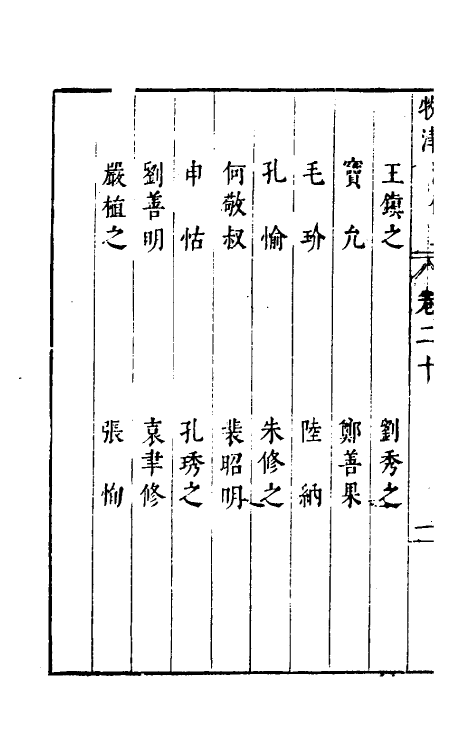 牧津 卷二十 一
王鎮之 劉秀之
竇允 鄭善果
毛玠 陸納
孔愉 朱修之
何敬叔 裴昭明
申恬 孔琇之
劉善明 袁聿修
嚴植之 張恂